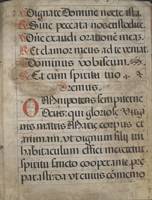 Dignare Domine nocte ista.
Sine peccata nos custodire.
Dne exaudi orationē meam.
Et clamor meus ad te veniat.
Dominus vobiscum.
Et cum spiritu tuo.
Oremus.
Omnipotens sempiterne
Deus: qui gloriose Virgi
nis matris Mariæ corpus et
animam, ut dignum filij tui
habitaculum effici mereretur,
spiritu sancto cooperante præ
parasti: da ut cuius commemo